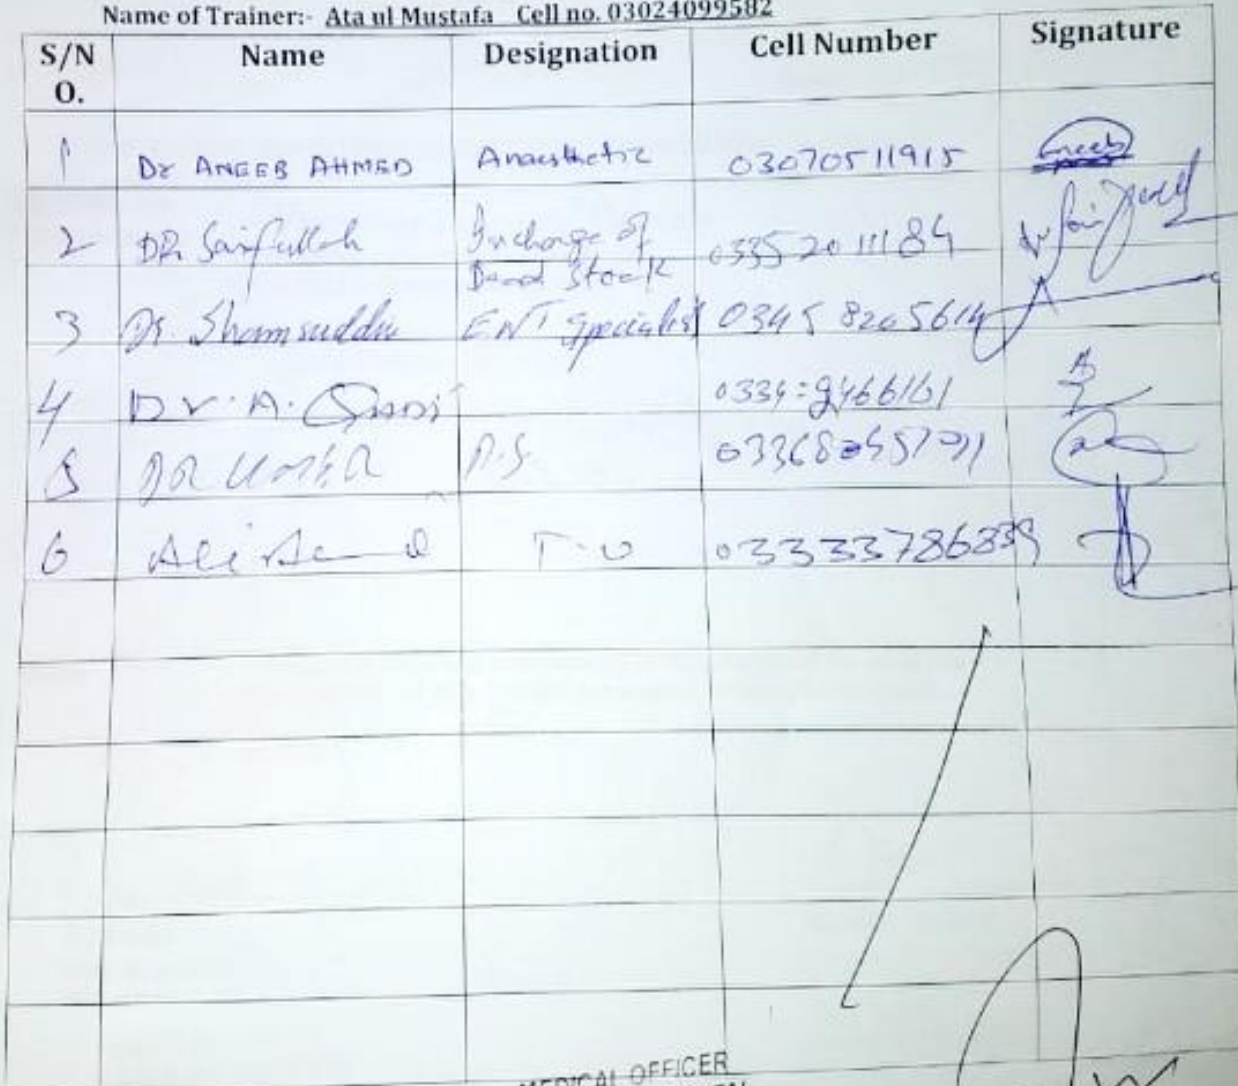 Name of Trainer:- Ata ul Mustafa Cell no. 03024099582
S/N O. Name Designation Cell Number Signature
1 Dr ANEEB AHMED Anaesthetic 03070511915 Aneeb
2 DR. Saifullah Incharge of 03352011184
Stock
3 Dr. Shamsuddin ENT Specialist 0345 8205614
4 Dr. A. 0334:9466161
5 DR UMER
6 Ali T.O 03333786839
MEDICAL OFFICER